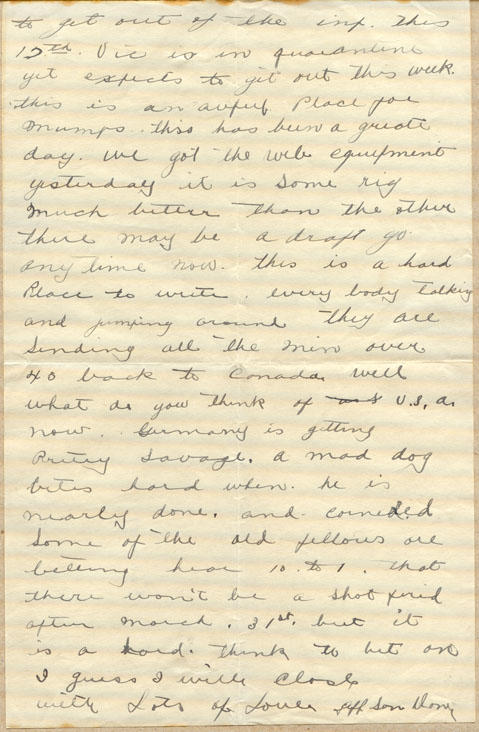 to get out of the inf. this
17th. Vic is in quarantine
yet expects to git out this week.
this is an awful Place for
mumps. this has been a greate
day. we got the web equipment
yesterday it is some rig
much beterr than the other
there may be a draft go
any time now. this is a hard
Place to write. every body talking
and jumping around they are
sending all the min over
40 back to Canada. well
what do you think of U.S. a.
now. Germany is gitting
Pritey Savage. a mad dog
bites hard when. he is
nearly done. and cornered
some of the old fellows are
betting hear 10. to 1. that
there won't be a shot fired
after march. 31st. but it
is a hard. think to bet on
I guess I will close
with Lots of Love Son